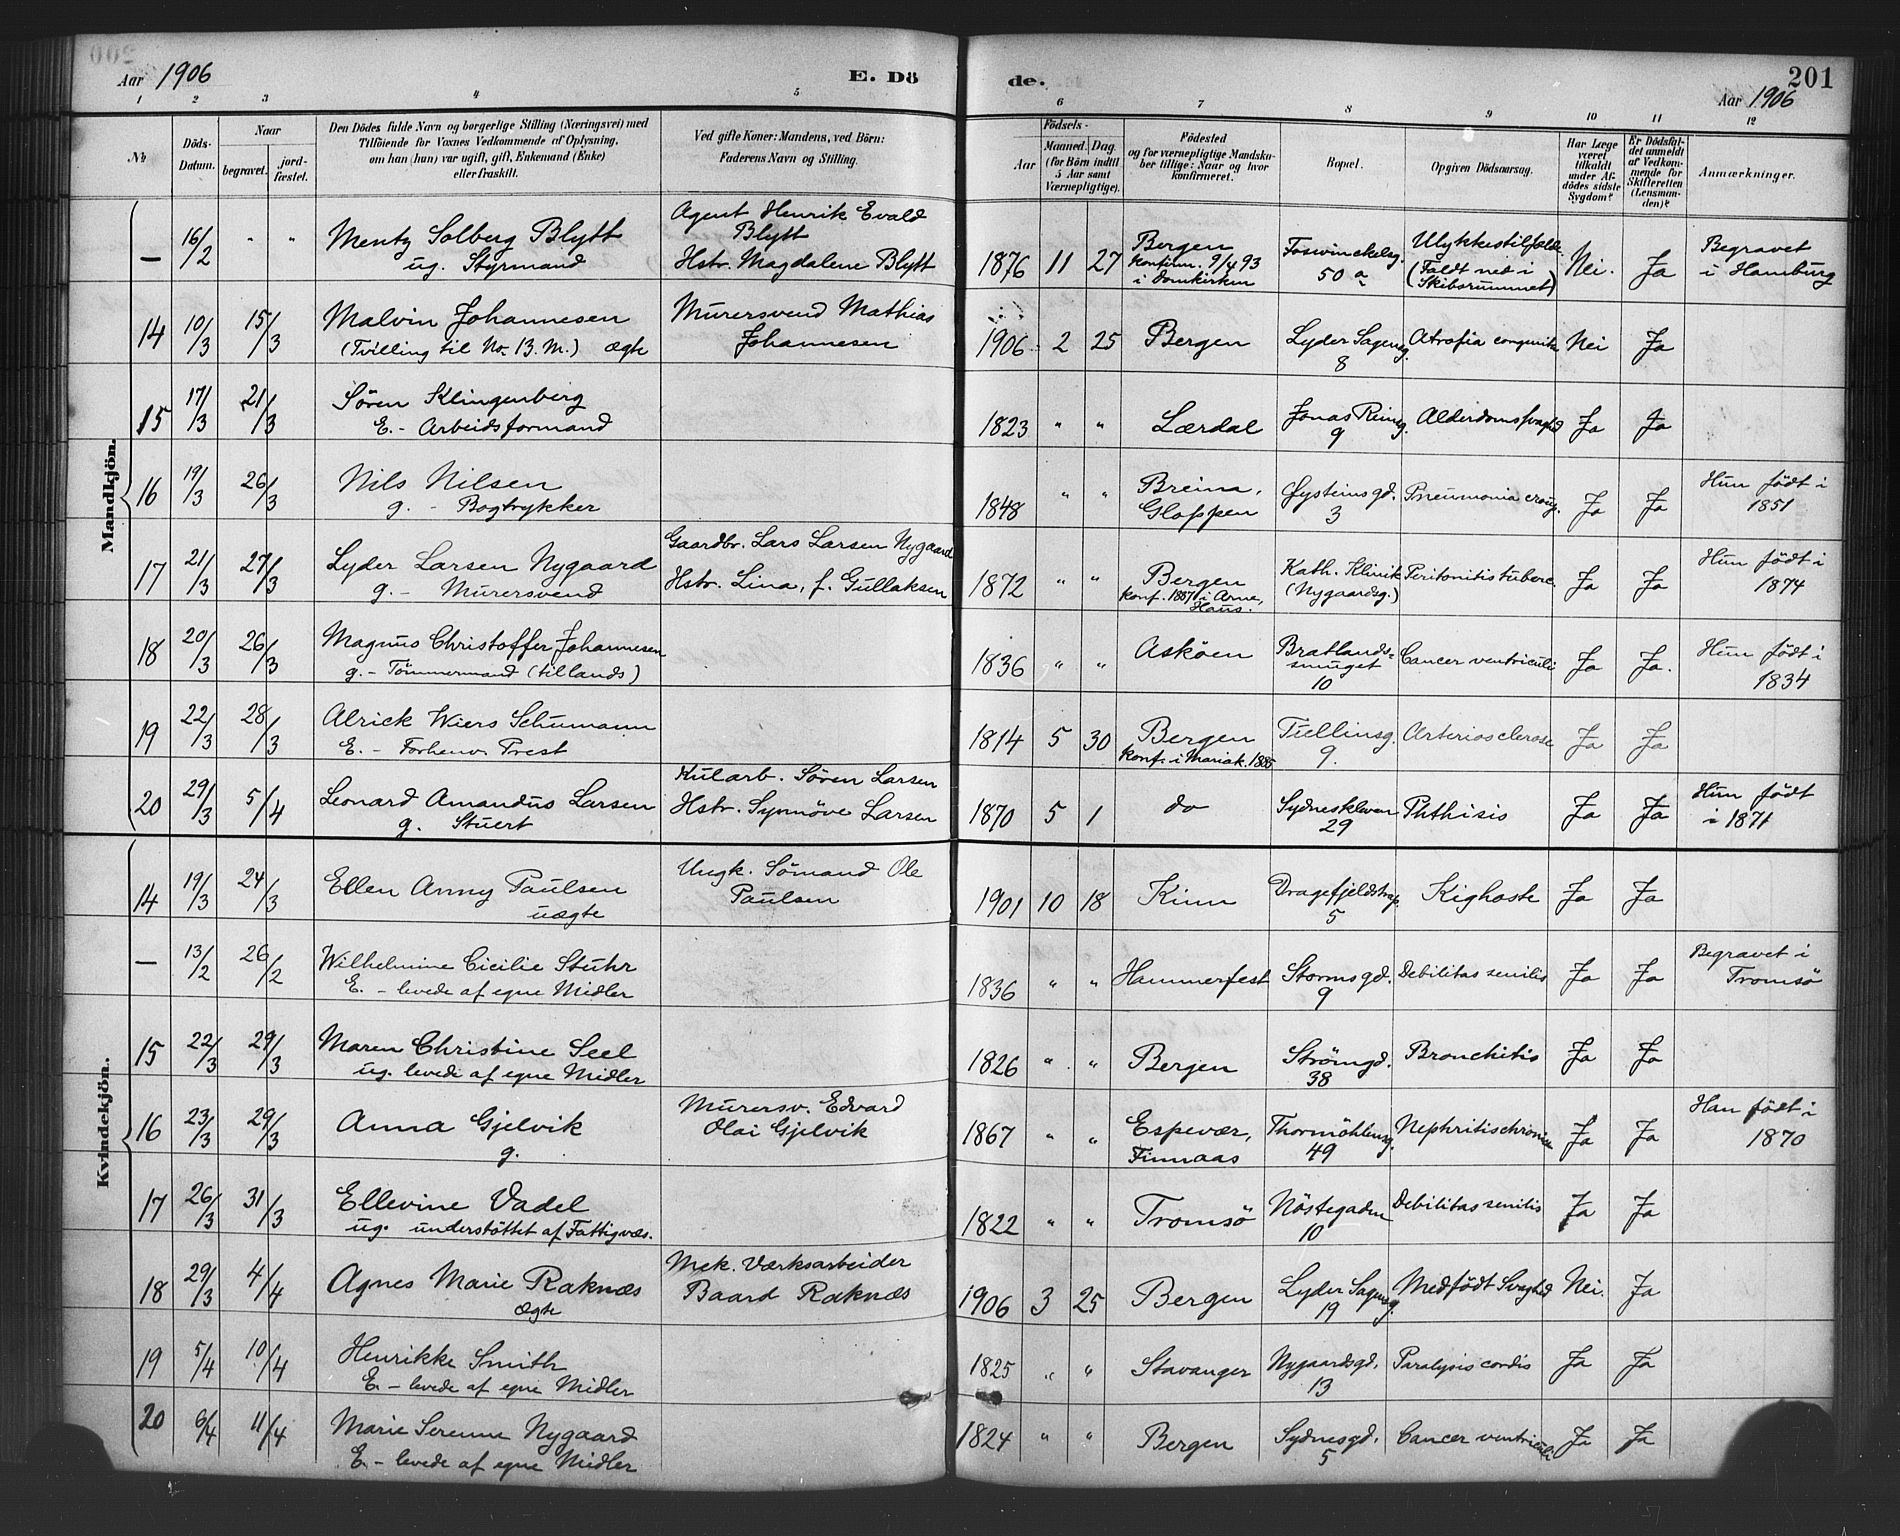 Aar 1906 E. Dö
de. Aar 1906 201
1 2 3 4 5 6 7 8 9 10 11 12
No
Döds-Datum.
Naar
begravet.
jord-fæstet.
Den Dödes fulde Navn og borgerlige Stilling (Næringsvei) med
Tilföiende for Voxnes Vedkommende af Oplysning,
om han (hun) var ugift, gift, Enkemand (Enke)
eller fraskilt.
Ved gifte Koner: Mandens, ved Börn:
Faderens Navn og Stilling.
Födsels-
Aar
Maaned. Dag.
(for Börn indtil
5 Aar samt
Værnepligtige).
Födested
og for værnepligtige Mandska-
ber tillige: Naar og hvor
konfirmeret.
Bopæl.
Opgiven Dödsaarsag.
Har Læge
været
tilkaldt
under Af-
dödes sidste
Sygdom?
Er Dödsfal-
det anmeldt
af Vedkom-
mende for
Skifteretten
(Lensman-
den)?
Anmærkninger.
Mandkjön.
— 16/2 " " Mentz Solberg Blytt
ug. Styrmand
Agent Henrik Evald
Blytt
Hstr. Magdalene Blytt
1876 11 27 Bergen
konfirm. 9/4 93
i Domkirken
Foswinckelsg.
50 a
Ulykkestilfælde
(Faldt ned i
Skibsrummet)
Nei. Ja
Begravet
i Hamburg
14 10/3 15/3 Malvin Johannesen
(Tvilling til No. 13. M.) ægte
Murersvend Mathias
Johannesen
1906 2 25 Bergen
Lyder Sagensg.
8
Atrofia congenita Nei Ja
15 17/3 21/3 Sören Klingenberg
E. - Arbeidsformand
1823 " " Lærdal
Jonas Reinsg.
9
Alderdomssvaghd Ja Ja
16 19/3 26/3 Nils Nilsen
g. - Bogtrykker
1848 " " Breim,
Gloppen
Øysteinsgd.
3
Pneumonia croup. Ja Ja
Hun födt i
1851
17 21/3 27/3 Lyder Larsen Nygaard
g. - Murersvend
Gaardbr. Lars Larsen Nygaard
Hstr. Lina, f. Gullaksen
1872 " " Bergen
konf. 1887 i Arne,
Haus.
Kath. Klinik
(Nygaardsg.)
Peritonitis tuberc. Ja Ja
Hun födt i
1874
18 20/3 26/3 Magnus Christoffer Johannesen
g. - Tömmermand (tillands)
1836 " " Askøen
Bratlands-
smuget
10
Cancer ventriculi Ja Ja.
Hun födt i
1834
19 22/3 28/3 Alrick Wiers Schumann
E. - Forhenv. Prest
1814 5 30 Bergen
konf. i Mariak.
Tüllinsg.
9.
Arteriosclerose Ja Ja
20 29/3 5/4 Leonard Amandus Larsen
g. Stuert
Kularb. Sören Larsen
Hstr. Synnöve Larsen
1870 5 1 do
Sydneskleven
29
Phthisis Ja Ja
Hun födt
i 1871
Kvindekjön.
14 19/3 24/3 Ellen Anny Paulsen
uægte
Ungk. Sömand Ole
Paulsen
1901 10 18 Kinn
Dragefjeldstrap.
5
Kighoste Ja Ja
— 13/2 26/2 Wilhelmine Cicilie Stuhr
E. - levede af egne Midler
1836 " " Hammerfest
Stormsgd.
9
Debilitas senilis Ja Ja
Begravet i
Tromsö
15 22/3 29/3 Maren Christine Seel
ug. levede af egne Midler
1826 " " Bergen
Strömgd.
38
Bronchitis Ja Ja
16 23/3 29/3 Anna Gjelvik
g.
Murersv. Edvard
Olai Gjelvik
1867 " " Espevær,
Finnaas
Thormöhlensg.
49
Nephritis chronica Ja Ja
Han födt i
1870
17 26/3 31/3 Ellevine Vadel
ug. understöttet af Fattigvæs.
1822 " " Tromsö
Nöstegaden
10
Debilitas senilis Ja Ja
18 29/3 4/4 Agnes Marie Raknæs
ægte
Mek. Værksarbeider
Baard Raknæs
1906 3 25 Bergen
Lyder Sagensg.
19
Medfödt Svaghd Nei. Ja
19 5/4 10/4 Henrikke Smith
E. - levede af egne Midler
1825 " " Stavanger
Nygaardsgd.
13
Paralysis cordis Ja Ja
20 6/4 11/4 Marie Serenne Nygaard
E. - levede af egne Midler
1824 " " Bergen
Sydnesgd.
5
Cancer ventriculi Ja Ja